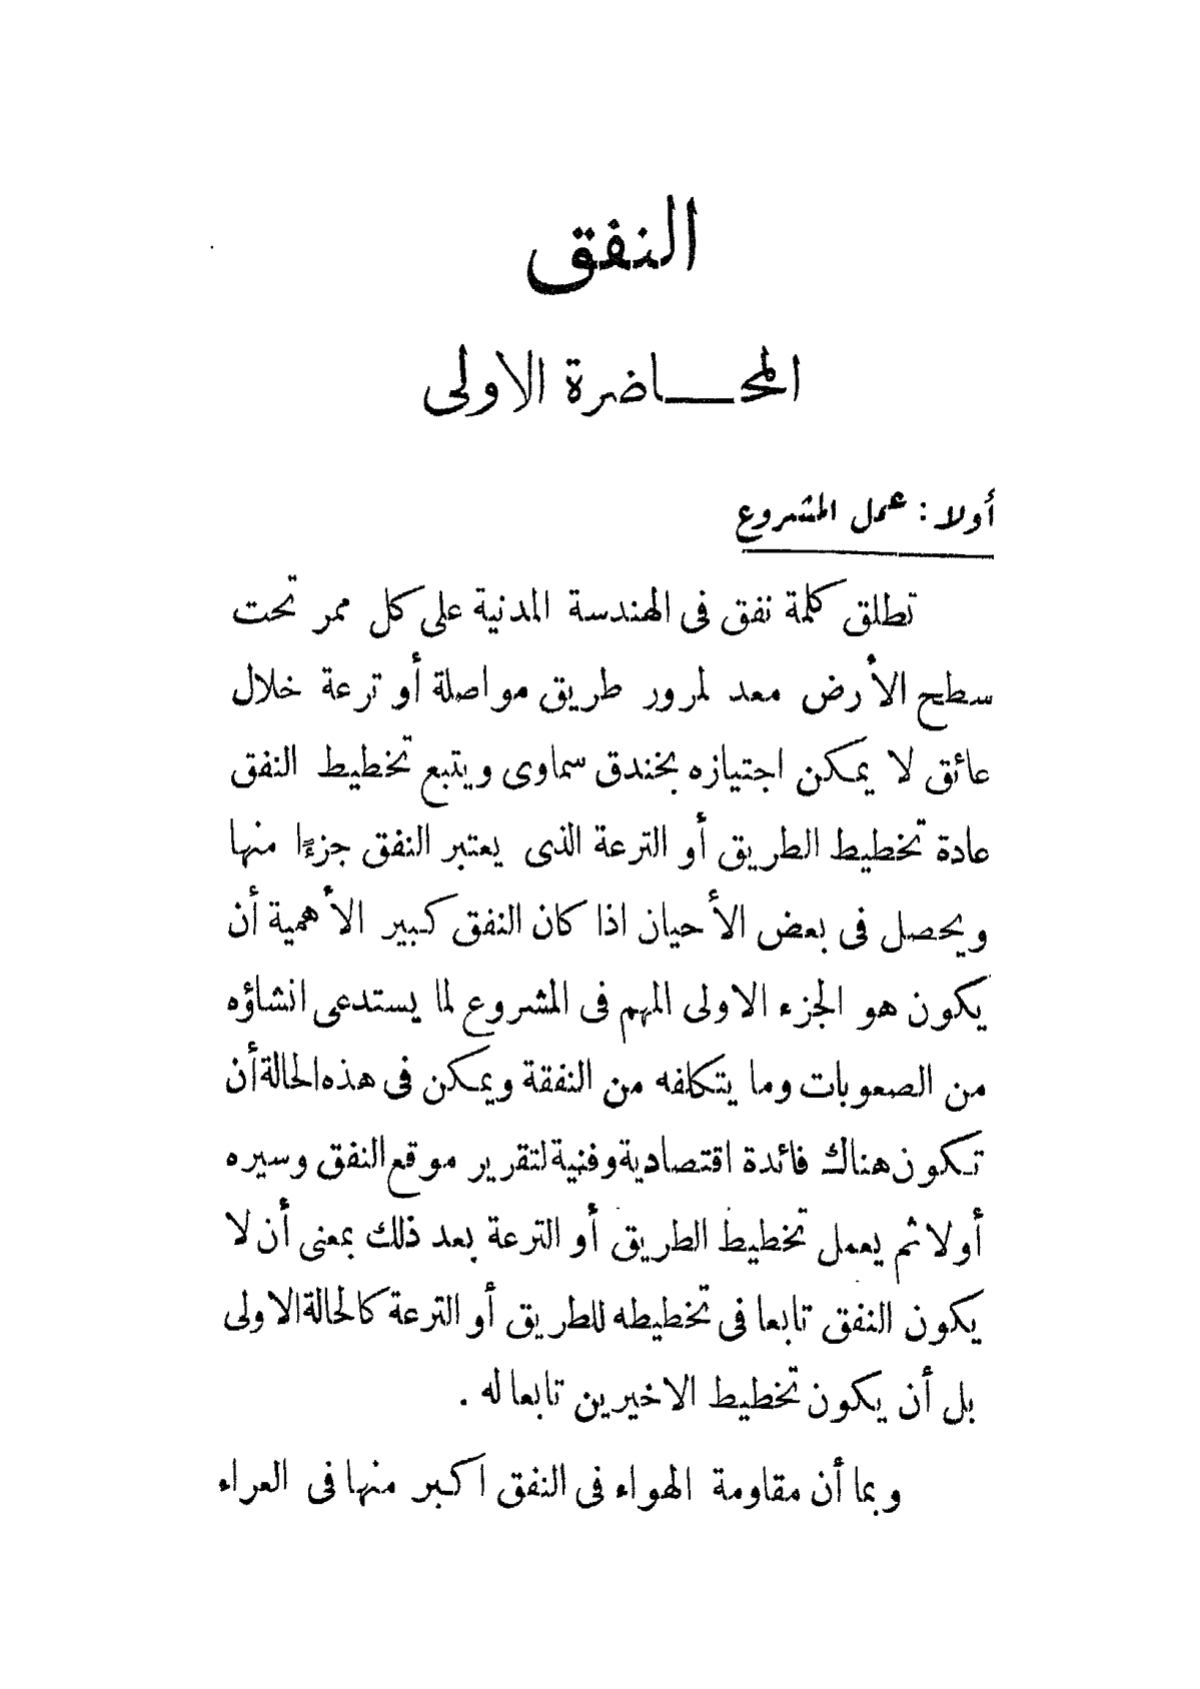 النفق
المحاضرة الاولى
أولا : عمل المشروع
تطلق كلمة نفق فى الهندسة المدنية على كل ممر تحت
سطح الأرض معد لمرور طريق مواصلة أو ترعة خلال
عائق لا يمكن اجتيازه بخندق سماوى ويتبع تخطيط النفق
عادة تخطيط الطريق أو الترعة الذى يعتبر النفق جزءًا منها
ويحصل فى بعض الأحيان اذا كان النفق كبير الأهمية أن
يكون هو الجزء الاولى المهم فى المشروع لما يستدعى انشاؤه
من الصعوبات وما يتكلفه من النفقة ويمكن فى هذه الحالة أن
تكون هناك فائدة اقتصادية وفنية لتقرير موقع النفق وسيره
أولا ثم يعمل تخطيط الطريق أو الترعة بعد ذلك بمعنى أن لا
يكون النفق تابعا فى تخطيطه للطريق أو الترعة كالحالة الاولى
بل أن يكون تخطيط الاخيرين تابعا له .
وبما أن مقاومة الهواء فى النفق اكبر منها فى العراء